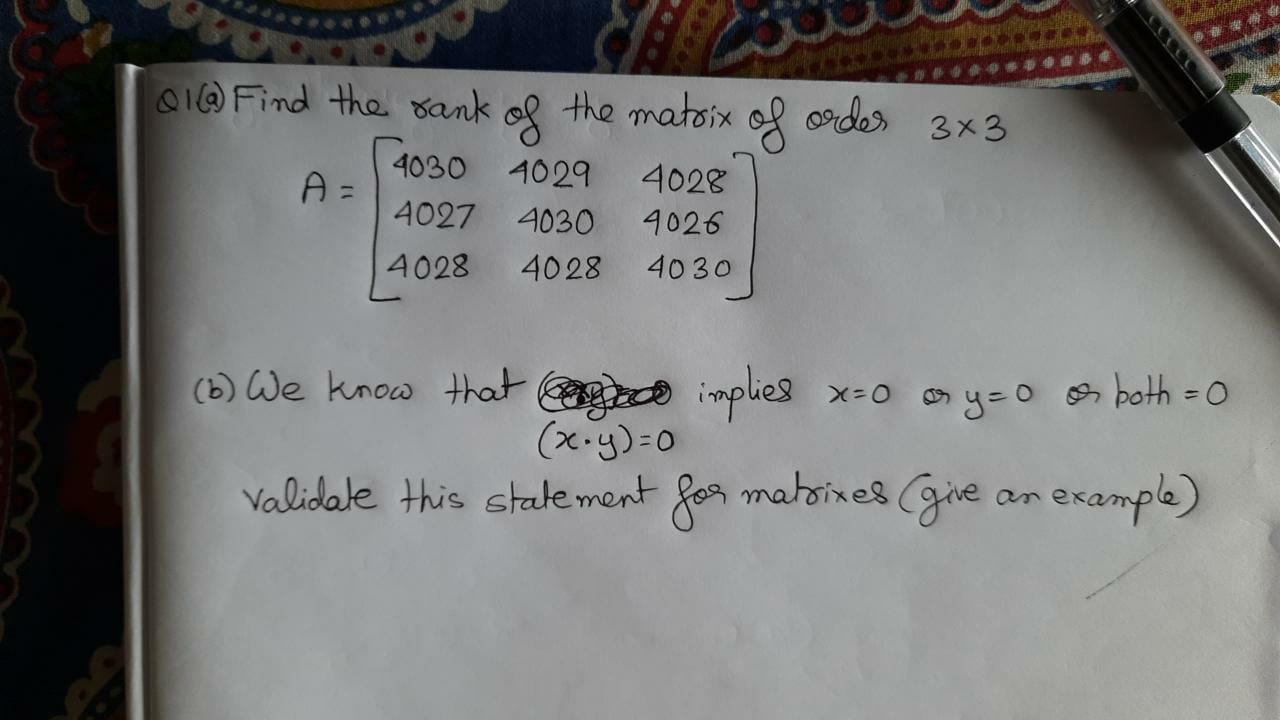 Q1(a) Find the rank of the matrix of order 3×3
A = [4030 4029 4028
4027 4030 4026
4028 4028 4030]
(b) We know that implies x=0 or y=0 or both =0
(x·y)=0
validate this statement for matrixes (give an example)